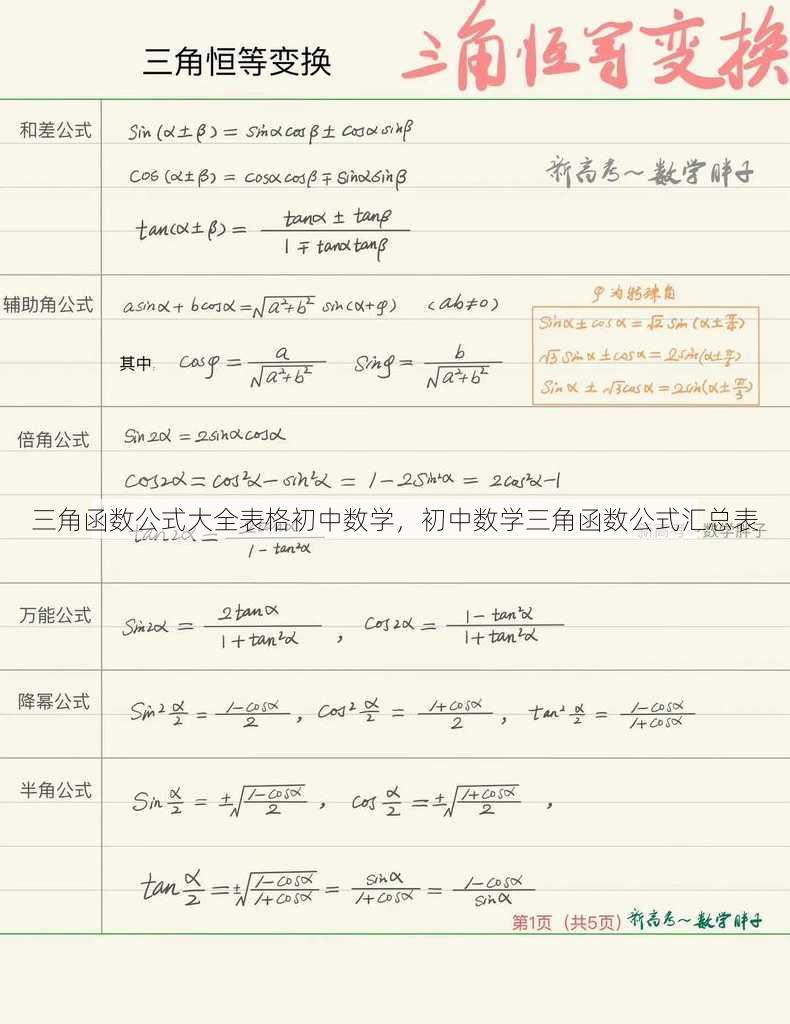 三角恒等变换
三角恒等变换
和差公式
sin(α±β) = sinαcosβ ± cosαsinβ
cos(α±β) = cosαcosβ ∓ sinαsinβ
新高考~数学胖子
tan(α±β) = (tanα ± tanβ) / (1 ∓ tanαtanβ)
辅助角公式
asinα + bcosα = √(a²+b²) sin(α+φ) (ab≠0)
其中: cosφ = a/√(a²+b²) sinφ = b/√(a²+b²)
φ为特殊角
sinα ± cosα = √2 sin(α±π/4)
√3 sinα ± cosα = 2sin(α±π/6)
sinα ± √3cosα = 2sin(α±π/3)
倍角公式
sin2α = 2sinαcosα
cos2α = cos²α − sin²α = 1 − 2sin²α = 2cos²α − 1
三角函数公式大全表格初中数学，初中数学三角函数公式汇总表
tan2α = / 1 − tan²α
新高考 数学胖子
万能公式
sin2α = 2tanα / (1 + tan²α) , cos2α = (1 − tan²α) / (1 + tan²α)
降幂公式
sin² α/2 = (1−cosα)/2 , cos² α/2 = (1+cosα)/2 , tan² α/2 = (1−cosα)/(1+cosα)
半角公式
sin α/2 = ±√((1−cosα)/2) , cos α/2 = ±√((1+cosα)/2) ,
tan α/2 = ±√((1−cosα)/(1+cosα)) = sinα/(1+cosα) = (1−cosα)/sinα
第1页（共5页）新高考~数学胖子